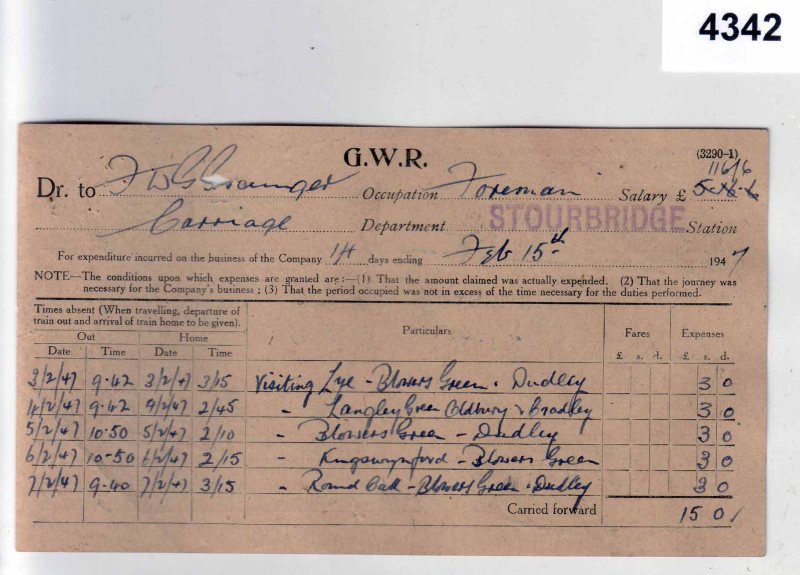 4342
G.W.R.
(3290-1)
116/6
Dr. to F W G Grainger Occupation Foreman Salary £
Carriage Department STOURBRIDGE Station
For expenditure incurred on the business of the Company 14 days ending Feb 15th 1947
NOTE—The conditions upon which expenses are granted are :—(1) That the amount claimed was actually expended. (2) That the journey was
necessary for the Company's business ; (3) That the period occupied was not in excess of the time necessary for the duties performed.
Times absent (When travelling, departure of
train out and arrival of train home to be given).
Particulars Fares Expenses
Out Home
Date Time Date Time £ s. d. £ s. d.
3/2/47 9.42 3/2/47 3/15 Visiting Lye - Blowers Green . Dudley 3 0
4/2/47 9.42 4/2/47 2/45 " Langley Green Oldbury & Bradley 3 0
5/2/47 10.50 5/2/47 2/10 " Blowers Green - Dudley 3 0
6/2/47 10-50 6/2/47 2/15 " Kingswynford - Blowers Green 3 0
7/2/47 9.40 7/2/47 3/15 " Round Oak - Blowers Green . Dudley 3 0
Carried forward 15 0